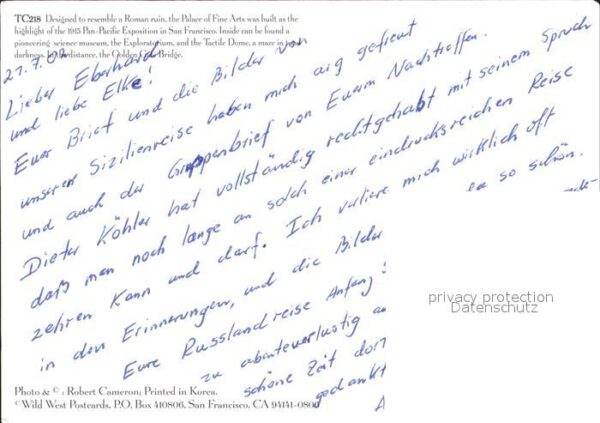 TC218 Designed to resemble a Roman ruin, the Palace of Fine Arts was built as the
highlight of the 1915 Pan-Pacific Exposition in San Francisco. Inside can be found a
pioneering science museum, the Exploratorium, and the Tactile Dome, a maze in
darkness. In the distance, the Golden Gate Bridge.
Lieber Eberhard
und liebe Elke!
Euer Brief und die Bilder von
unserer Sizilienreise haben mich arg gefreut
und auch der Gruppenbrief von Eurem Nachtreffen.
Dieter Köhler hat vollständig rechtgehabt mit seinem Spruch
daß man noch lange an solch einer eindrucksreichen Reise
zehren kann und darf. Ich verliere mich wirklich oft
in den Erinnerungen, und die Bilder so schön.
Eure Russlandreise Anfang
zu abenteuerlustig
schöne Zeit dort
gedankt
privacy protection
Datenschutz
Photo & © : Robert Cameron; Printed in Korea.
©Wild West Postcards, P.O. Box 410806, San Francisco, CA 94141-0806